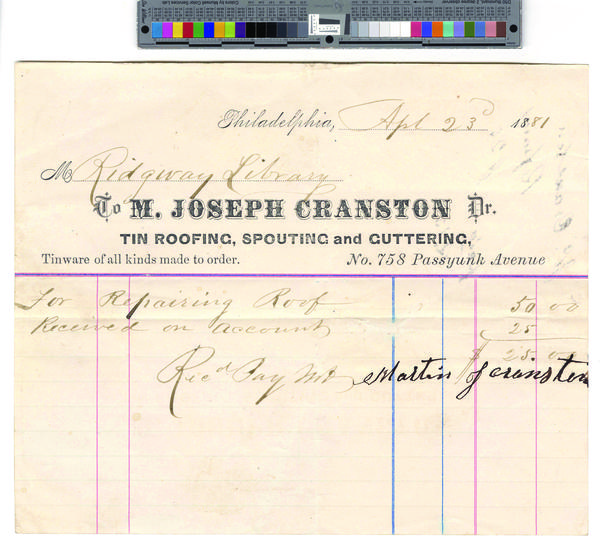 Philadelphia, Apl 23d 1881
M Ridgway Library
To M. JOSEPH CRANSTON Dr.
TIN ROOFING, SPOUTING and GUTTERING,
Tinware of all kinds made to order. No. 758 Passyunk Avenue
For Repairing Roof 50 00
Received on account 25
$ 25.00
Recd Paymt Martin J Cranston